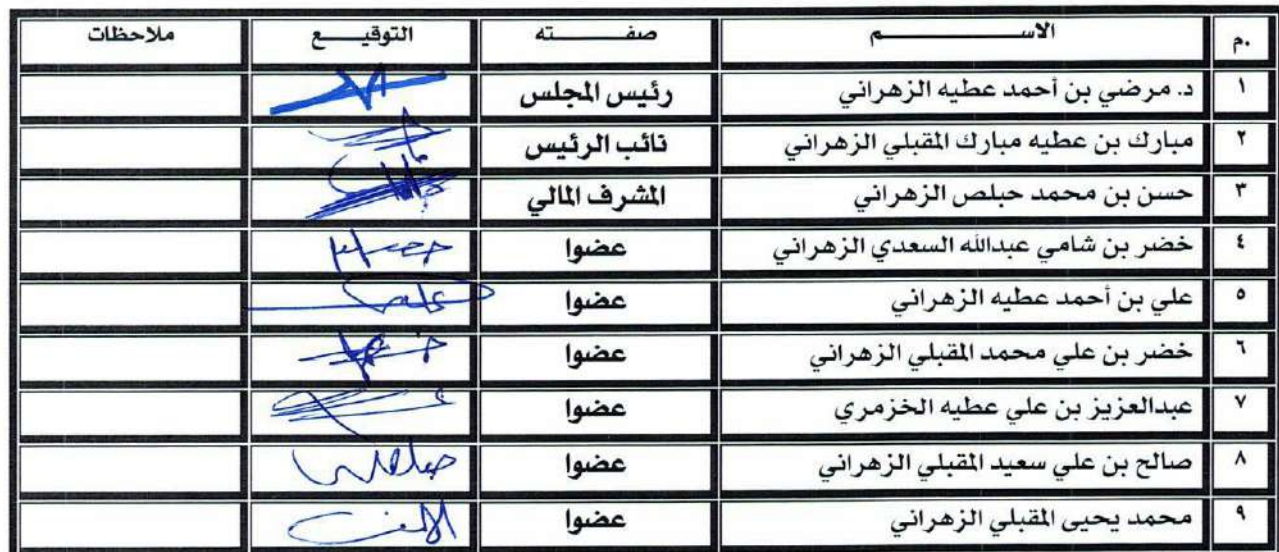 م. الاســـــــم صفـــــته التوقيـــع ملاحظات
١ د. مرضي بن أحمد عطيه الزهراني رئيس المجلس
٢ مبارك بن عطيه مبارك المقبلي الزهراني نائب الرئيس
٣ حسن بن محمد حبلص الزهراني المشرف المالي
٤ خضر بن شامي عبدالله السعدي الزهراني عضوا
٥ علي بن أحمد عطيه الزهراني عضوا
٦ خضر بن علي محمد المقبلي الزهراني عضوا
٧ عبدالعزيز بن علي عطيه الخزمري عضوا
٨ صالح بن علي سعيد المقبلي الزهراني عضوا
٩ محمد يحيى المقبلي الزهراني عضوا